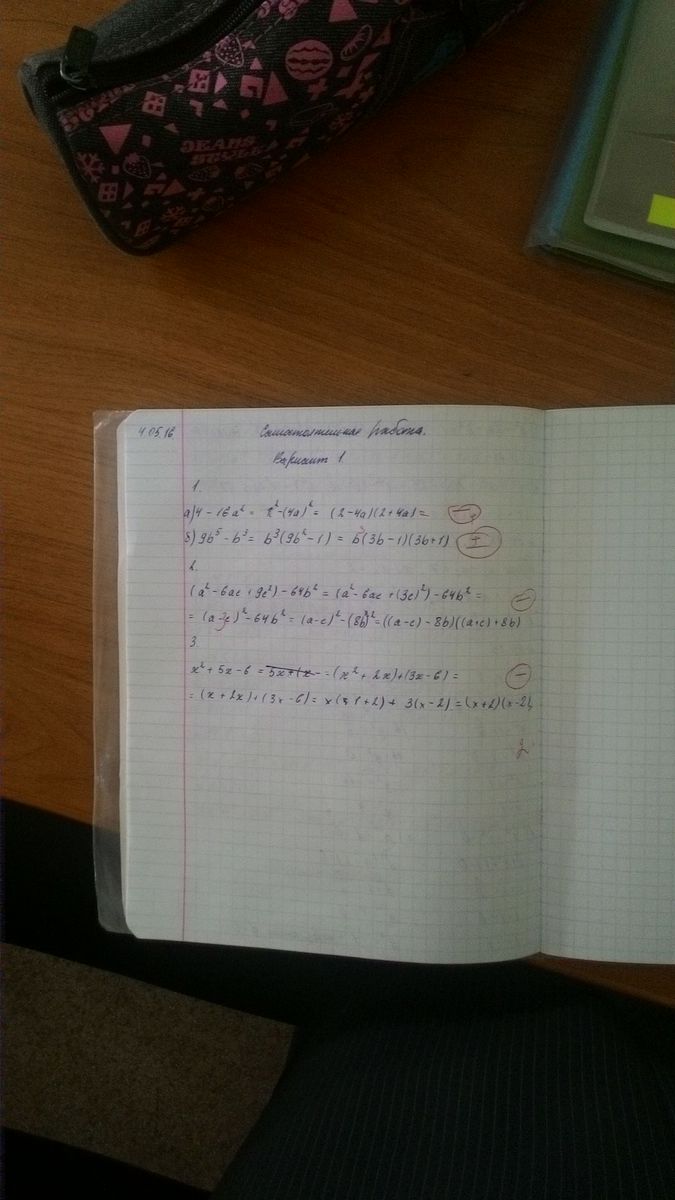 JEANS
STYLE
4.05.16 Самостоятельная работа.
Вариант 1.
1.
а) 4 - 16a² = 2² - (4a)² = (2 - 4a)(2 + 4a) = -
б) 9b⁵ - b³ = b³(9b² - 1) = b³(3b - 1)(3b + 1) ±
2.
(a² - 6ac + 9c²) - 64b² = (a² - 6ac + (3c)²) - 64b² = -
= (a - 3c)² - 64b² = (a - c)² - (8b)² = ((a - c) - 8b)((a + c) + 8b)
3.
x² + 5x - 6 = 5x + (x = (x² + 2x) + (3x - 6) = -
= (x + 2x) + (3x - 6) = x ( + 2) + 3(x - 2) = (x + 2)(x - 2)
2